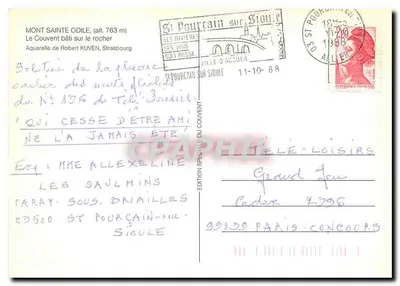 MONT SAINTE ODILE, (alt. 763 m)
Le Couvent bâti sur le rocher
Aquarelle de Robert KUVEN, Strasbourg
St Pourçain sur Sioule
SES RIVIERES
SES VINS
SON PASSE
VILLE D'ACCUEIL
ST POURCAIN SUR SIOULE
11-10-88
03 ST POURCAIN
1988
ALLIER
Solution de la
des mots fléchés
du N° de Télé
"QUI CESSE D'ETRE AMI
NE L'A JAMAIS ETE"
Exp: MME ALLEXELINE
LES SAULMINS
PARAY-SOUS-BRIAILLES
03500 ST POURÇAIN-sur-
SIOULE
EDITION SPECIALE DU COUVENT
TÉLÉ-LOISIRS
Grand Jeu
Cedex
PARIS-CONCOURS